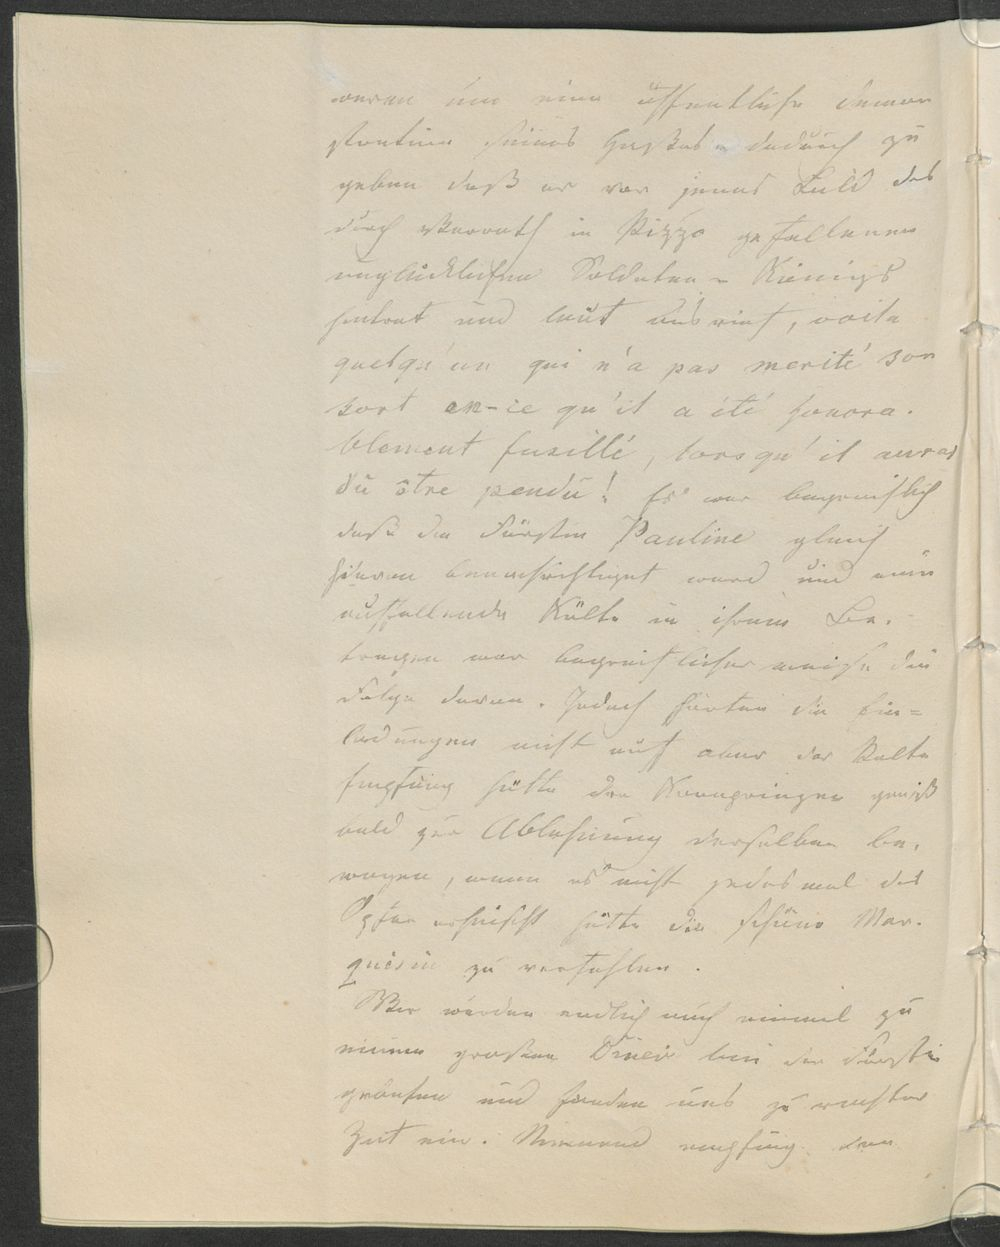 waren um eine öffentliche Demon
stration seines Hasses dadurch zu
geben daß er vor jenes Bild des
durch Verrath in Pizzo gefallenen
unglücklichen Soldaten-Königs
hintrat und laut ausrief, voila
quelqu'un qui n'a pas merité son
sort en-ce qu'il a été honora.
blement fusillé, lorsqu'il aurai
dû être pendu! Es war begreiflich
daß die Fürstin Pauline gleich
hievon benachrichtiget ward und eine
auffallende Kälte in ihrem Be.
tragen war begreiflicher weise die
Folge davon. Jedoch hörten die Ein=
ladungen nicht auf aber der kalte
Empfang hätte den Kronprinzen gewiß
bald zur Ablehnung derselben be.
wogen, wenn es nicht jedes mal das
Opfer erheischt hätte die schöne Mar.
quisin zu verfehlen.
Wir wurden endlich auch einmal zu
einem großen Diner bei der Fürstin
gebeten und fanden uns zu rechter
Zeit ein. Niemand empfing den